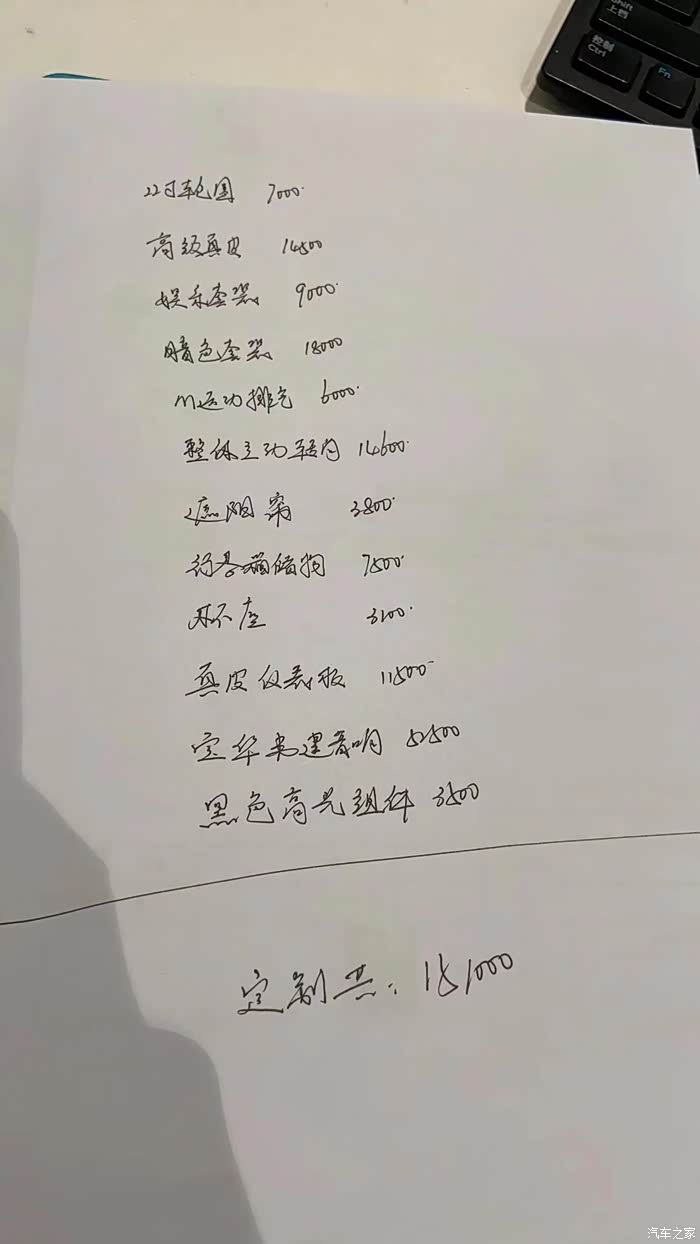 Shift
上档
控制
Ctrl
Fn
22寸轮圈 7000.
高级真皮 14500
娱乐套装 9000.
暗色套装 18000
M运动排气 6000.
整体主动转向 14600.
遮阳帘 3800.
行李箱储物 7500.
第三座 3100.
真皮仪表板 11500
宝华韦健音响 52500
黑色高光组件 3500
定制共: 151000
汽车之家